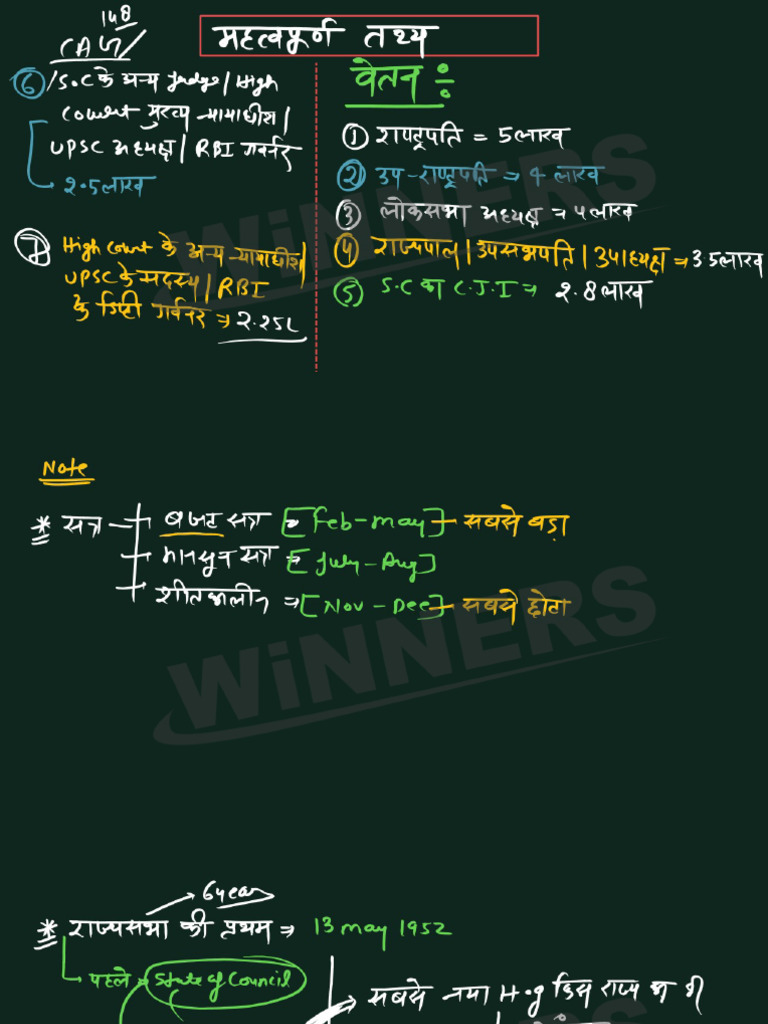 148
CAG/
महत्वपूर्ण तथ्य
⑥ /S.C के अन्य Judge / High
Court मुख्य न्यायाधीश /
UPSC अध्यक्ष / RBI गवर्नर
→ 2.5लाख
⑦ High Court के अन्य न्यायाधीश /
UPSC के सदस्य / RBI
के डिप्टी गवर्नर ⇒ 2.25L
वेतन ÷
① राष्ट्रपति = 5लाख
② उप-राष्ट्रपति ⇒ 4 लाख
③ लोकसभा अध्यक्ष ⇒ 4 लाख
④ राज्यपाल / उपसभापति / उपाध्यक्ष ⇒ 3.5लाख
⑤ S.C का C.J.I ⇒ 2.8लाख
WiNNERS
Note
* सत्र
बजट सत्र [Feb-May] सबसे बड़ा
मानसून सत्र [July-Aug]
शीतकालीन ⇒ [Nov-Dec] सबसे छोटा
WiNNERS
6 year
* राज्यसभा की प्रथम ⇒ 13 may 1952
→ पहले → State of Council
सबसे नया
WiNNERS